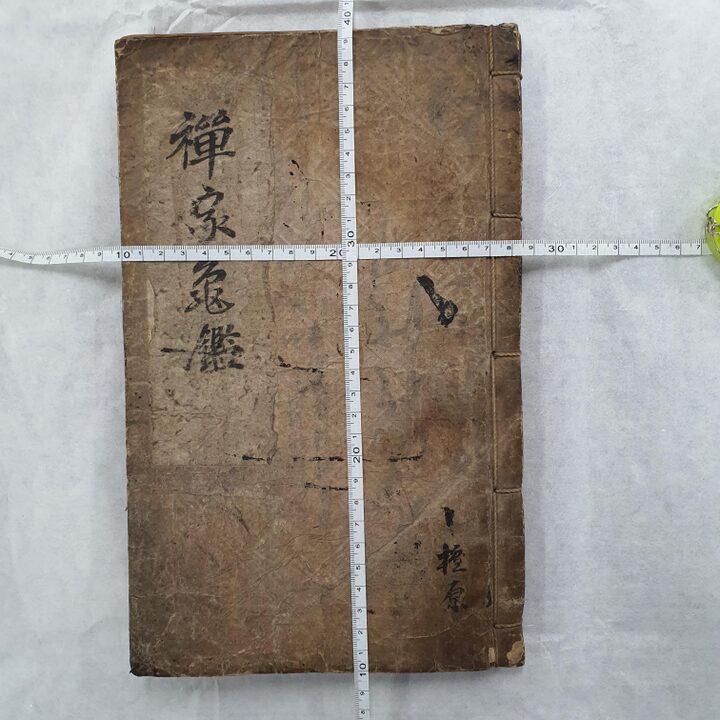 禪家龜鑑
檀原
10 20 30
40
30
20
10